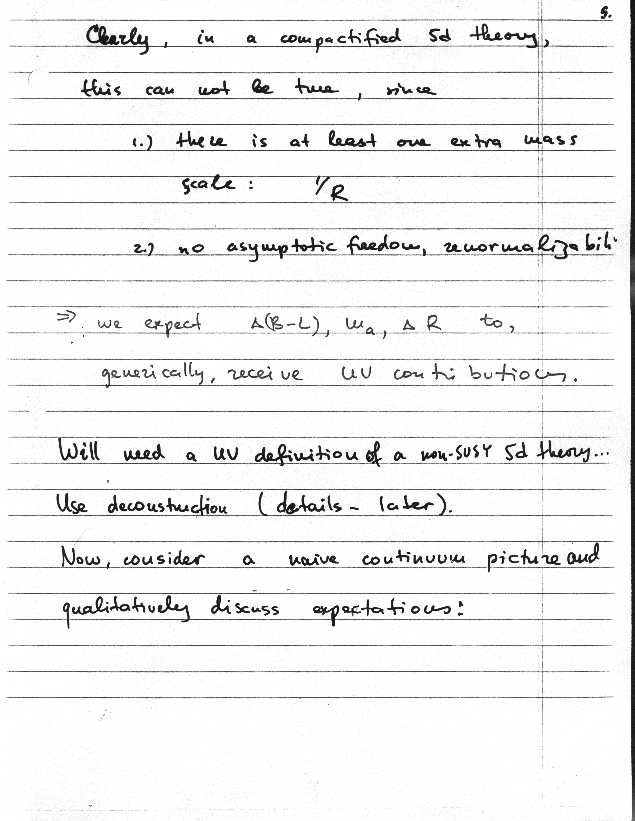 5.
Clearly, in a compactified 5d theory,
this can not be true, since
1.) there is at least one extra mass
scale: 1/R
2.) no asymptotic freedom, renormalizabili
⇒ we expect Δ(B-L), ma, Δ R to,
generically, receive UV contributions.
Will need a UV definition of a non-SUSY 5d theory...
Use deconstruction (details - later).
Now, consider a naive continuum picture and
qualitatively discuss expectations: